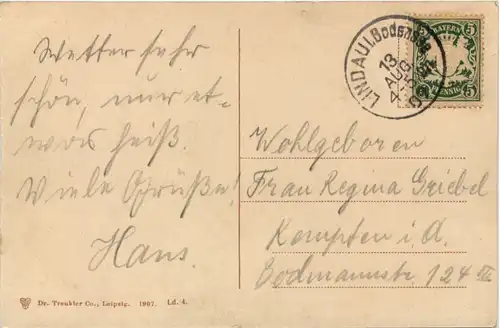 Wetter sehr
schön, nur et-
was heiß.
Viele Grüße!
Hans.
LINDAU i. Bodensee
13
AUG
4-5
BAYERN
5 5
PFENNIG
Wohlgeboren
Frau Regina Griebel
Kempten i. A.
Bodmannstr. 124 III
Dr. Trenkler Co., Leipzig. 1907. Ld. 4.